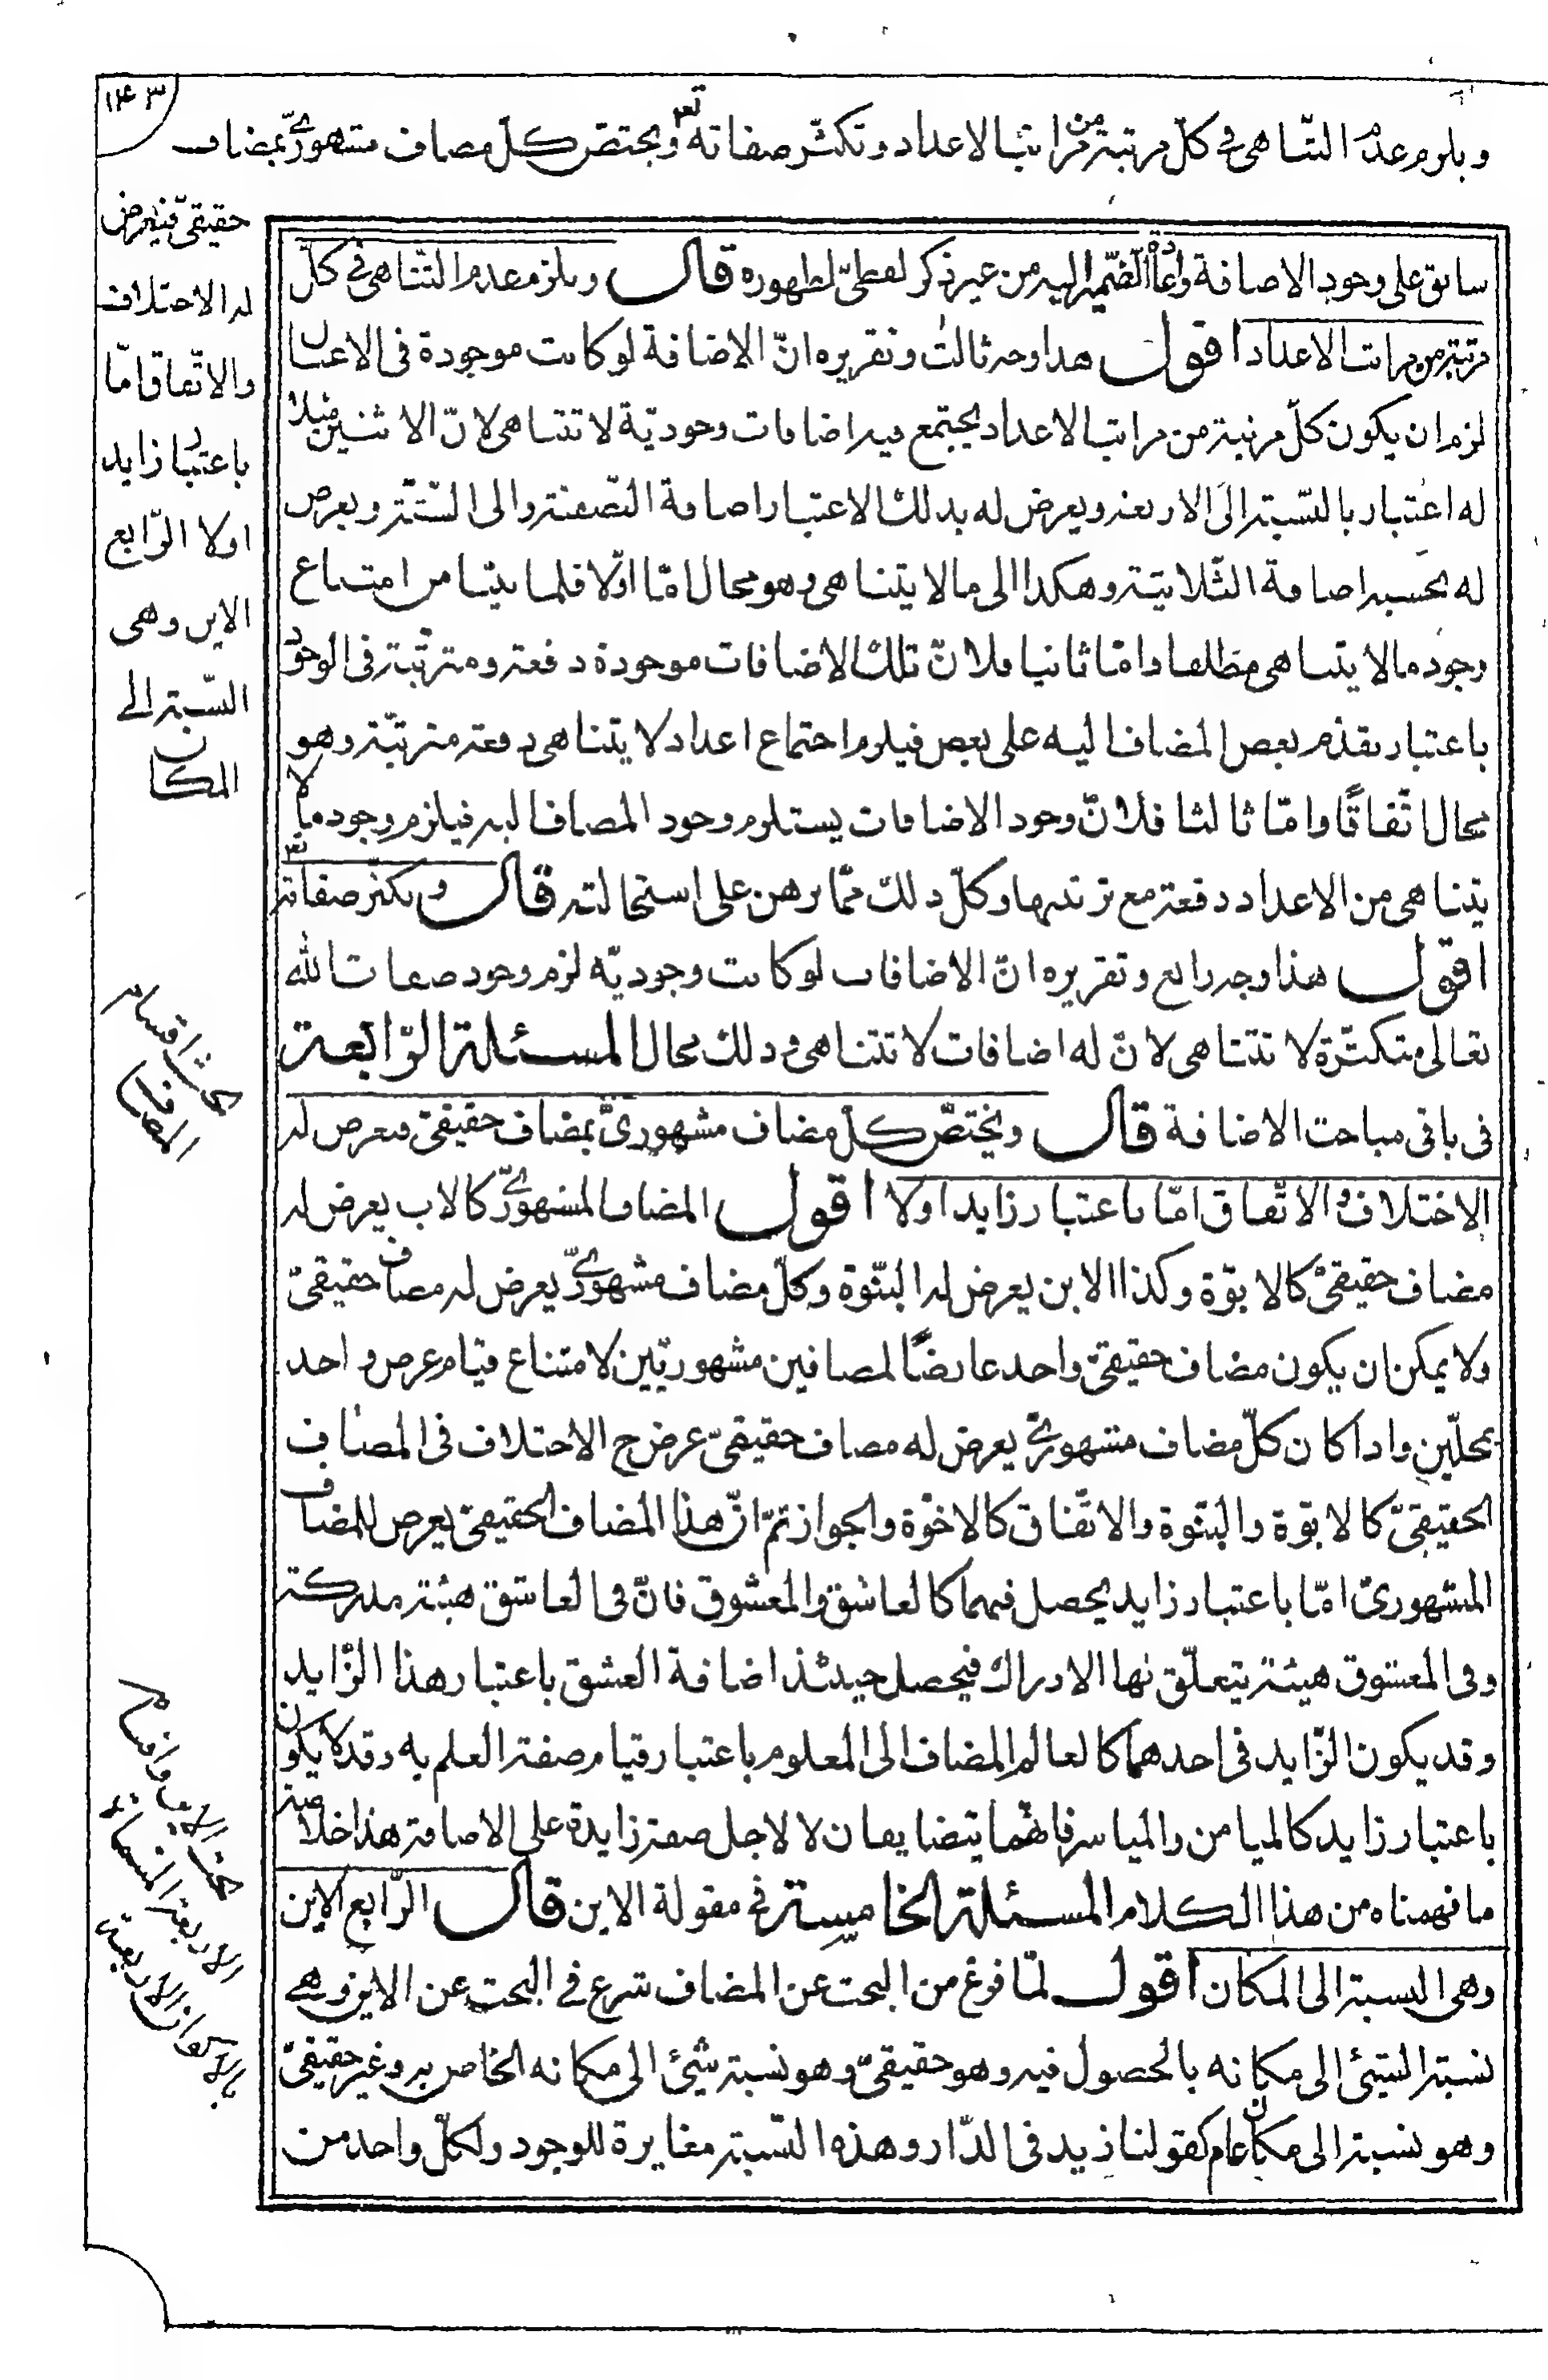 ١٤٣
ويلزم عدم التناهى فى كلّ مرتبة من مراتب الاعداد وتكثّر صفاته تعالى ويختصّ كلّ مضاف مشهورىّ بمضاف
حقيقىّ فيعرض
له الاختلاف
والاتّفاق امّا
باعتبار زايد
اولا الرّابع
الاين وهى
النّسبة الى
المكان
سابق على وجود الاضافة واعادة الضّمير اليه من غير ذكر لفظىّ لظهوره قال ويلزم عدم التّناهى فى كلّ
مرتبة من مراتب الاعداد اقول هذا وجه ثالث وتقريره انّ الاضافة لو كانت موجودة فى الاعيان
لزم ان يكون كلّ مرتبة من مراتب الاعداد يجتمع فيه اضافات وجوديّة لا تتناهى لانّ الاثنين مثلا
له اعتبار بالنّسبة الى الاربعة ويعرض له بذلك الاعتبار اضافة النّصفيّة والى السّتّة ويعرض
له بحسبه اضافة الثّلاثيّة وهكذا الى ما لا يتناهى وهو محال امّا اوّلا فلما بيّنا من امتناع
وجود ما لا يتناهى مطلقا وامّا ثانيا فلانّ تلك الاضافات موجودة دفعة ومترتّبة فى الوجود
باعتبار تقدّم بعض المضاف اليه على بعض فيلزم اجتماع اعداد لا يتناهى دفعة مترتّبة وهو
محال اتّفاقًا وامّا ثالثا فلانّ وجود الاضافات يستلزم وجود المضاف اليه فيلزم وجود ما لا
يتناهى من الاعداد دفعة مع ترتبها وكلّ ذلك ممّا برهن على استحالته قال وتكثّر صفاته تعالى
اقول هذا وجه رابع وتقريره انّ الاضافات لو كانت وجوديّه لزم وجود صفات الله
تعالى متكثّرة لا تتناهى لانّ له اضافات لا تتناهى وذلك محال المسئلة الرّابعة
فى باقى مباحث الاضافة قال ويختصّ كلّ مضاف مشهورىّ بمضاف حقيقىّ فيعرض له
الاختلاف والاتّفاق امّا باعتبار زايد اولا اقول المضاف المشهورىّ كالاب يعرض له
مضاف حقيقىّ كالابوّة وكذا الابن يعرض له البنوّة وكلّ مضاف مشهورىّ يعرض له مضاف حقيقىّ
ولا يمكن ان يكون مضاف حقيقىّ واحد عارضًا لمضافين مشهوريّين لامتناع قيام عرض واحد
بمحلّين واذا كان كلّ مضاف مشهورىّ يعرض له مضاف حقيقىّ عرض ح الاختلاف فى المضاف
الحقيقىّ كالابوّة والبنوّة والاتّفاق كالاخوّة والجوار ثمّ انّ هذا المضاف الحقيقىّ يعرض للمضاف
المشهورىّ امّا باعتبار زايد يحصل فيهما كالعاشق والمعشوق فانّ فى العاشق هيئة مدركة
وفى المعشوق هيئة يتعلّق بها الادراك فيحصل حينئذ اضافة العشق باعتبار هذا الزّايد
وقد يكون الزّايد فى احدهما كالعالم المضاف الى المعلوم باعتبار قيام صفة العلم به وقد لا يكون
باعتبار زايد كالميامن والمياسر فانّهما يتضايفان لا لاجل صفة زايدة على الاضافة هذا خلاصة
ما فهمناه من هذا الكلام المسئلة الخامسة فى مقولة الاين قال الرّابع الاين
وهى النسبة الى المكان اقول لمّا فرغ من البحث عن المضاف شرع فى البحث عن الاين وهى
نسبة الشّئ الى مكانه بالحصول فيه وهو حقيقىّ وهو نسبة شئ الى مكانه الخاص به وغير حقيقىّ
وهو نسبة الى مكان عام كقولنا زيد فى الدّار وهذه النّسبة مغايرة للوجود ولكلّ واحد من
بحث اقسام
المضاف
بحث الاين واقسام
الاربعة المسماة
بالاكوان الاربعة